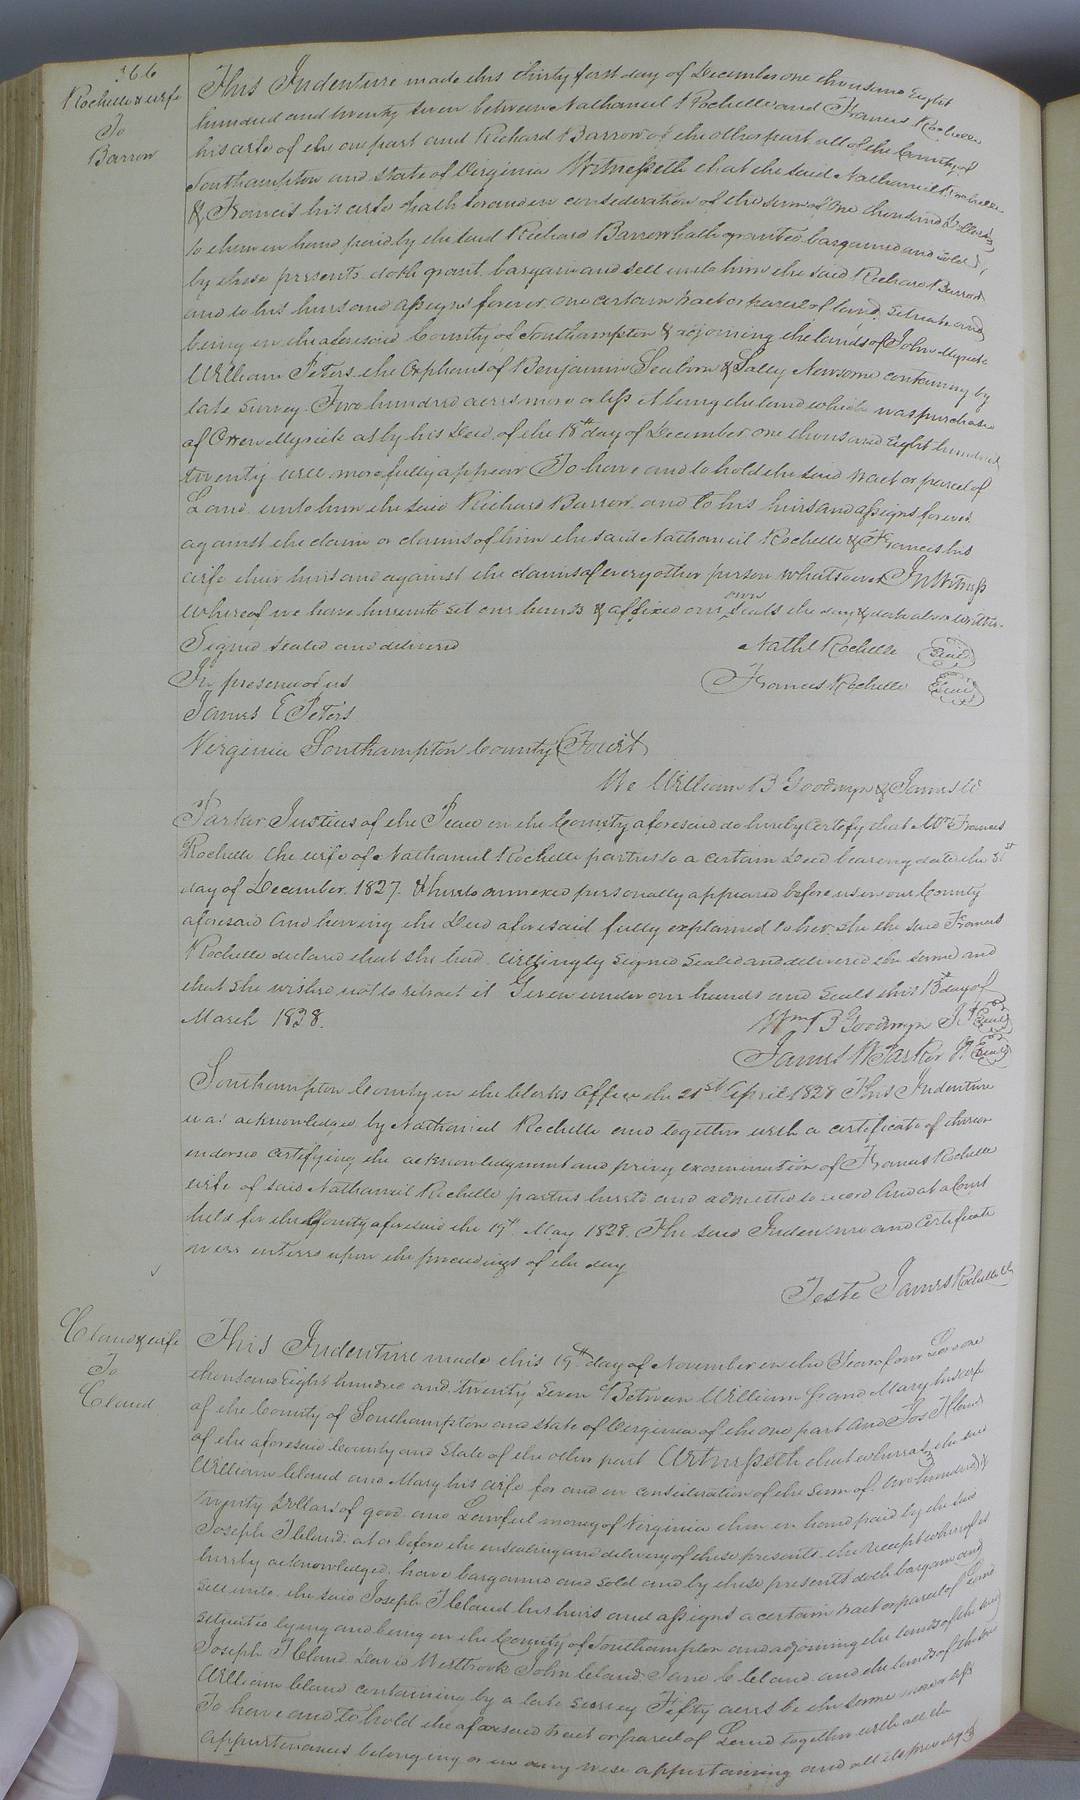 366
Rochelle & wife
To
Barrow
This Indenture made this thirty first day of December one thousand Eight
hundred and twenty seven between Nathaniel Rochelle and Francis Rochelle
his wife of the one part and Richard Barrow of the other part all of the County of
Southampton and State of Virginia Witnesseth that the said Nathaniel Rochelle
& Francis his wife hath for and in consideration of the sum of One thousand Dollars
to them in hand paid by the said Richard Barrow hath granted bargained and sold
by these presents doth grant, bargain and sell unto him the said Richard Barrow
and to his heirs and assigns forever one certain tract or parcel of land, situate and
being in the aforesaid County of Southampton & adjoining the lands of John Myrick
William Peters the Orphans of Benjamin & Sally Newsome containing by
late survey Two hundred acres more or less it being the land which was purchased
of Owen Myrick as by his Deed of the 18th day of December one thousand Eight hundred
twenty will more fully appear To have and to hold the said tract or parcel of
Land unto him the said Richard Barrow and to his heirs and assigns forever
against the claim or claims of him the said Nathaniel Rochelle & Francis his
wife their heirs and against the claims of every other person whatsoever In Witness
whereof we have hereunto set our hands & affixed our own seals the day & date above written
Signed sealed and delivered Nathl Rochelle Seal
In presence of us Francis Rochelle Seal
James E Peters
Virginia Southampton County Court
We William B Goodwyn & James W
Parker Justices of the Peace in the County aforesaid do hereby certify that Mrs Francis
Rochelle the wife of Nathaniel Rochelle parties to a certain Deed bearing date the 31st
day of December 1827. & hereto annexed personally appeared before us in our County
aforesaid and having the Deed aforesaid fully explained to her. She the said Francis
Rochelle declared that she had willingly signed sealed and delivered the same and
that she wished not to retract it Given under our hands and seals this 13th day of
March 1828.
Wm B Goodwyn JP Seal
James W Parker JP Seal
Southampton County in the Clerks Office the 21st April 1828 This Indenture
was acknowledged by Nathaniel Rochelle and together with a certificate of thereon
endorsed certifying the acknowledgment and privy examination of Francis Rochelle
wife of said Nathaniel Rochelle parties hereto and admitted to record And at a Court
held for the County aforesaid the 19th May 1828. The said Indenture and Certificate
were entered upon the proceedings of the day
Teste James Rochelle Cl
Claud & wife
To
Claud
This Indenture made this 19th day of November in the Year of our Lord one
thousand Eight hundred and twenty seven Between William and Mary his wife
of the County of Southampton and State of Virginia of the one part and Jos J Claud
of the aforesaid County and State of the other part Witnesseth that whereas the said
William Claud and Mary his wife for and in consideration of the sum of two hundred &
twenty Dollars of good and Lawful money of Virginia them in hand paid by the said
Joseph J Claud. at or before the ensealing and delivery of these presents. the receipt whereof is
hereby acknowledged. have bargained and sold and by these presents doth bargain and
sell unto the said Joseph J Claud his heirs and assigns a certain tract or parcel of land
situated lying and being in the County of Southampton and adjoining the lands of the said
Joseph J Claud David Westbrook John Claud. Jane C Claud and the lands of the said
William Claud containing by a late survey Fifty acres be the same more or less
To have and to hold the aforesaid tract or parcel of Land together with all the
appurtenances belonging or in any wise appertaining and all its